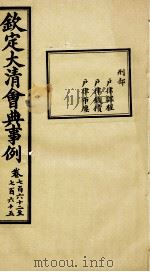 刑部
戶律課程
戶律錢債
戶律市廛
欽定大清會典事例
卷七百六十二至
七百六十五